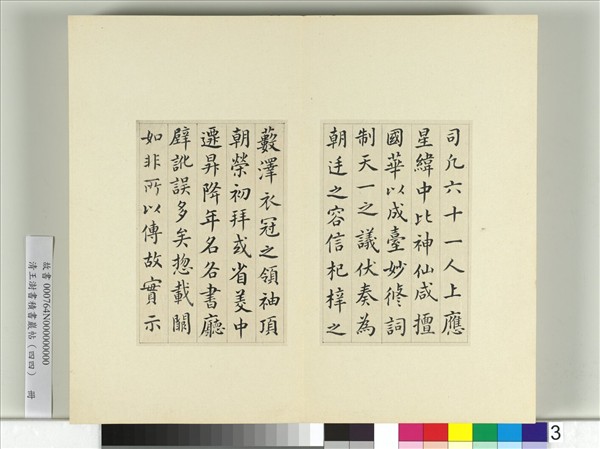 司凡六十一人上應
星緯中比神仙咸擅
國華以成臺妙修詞
制天一之議伏奏為
朝廷之容信杞梓之
藪澤衣冠之領袖頃
朝榮初拜或省美中
遷昇降年名各書廳
壁訛誤多矣惣載闕
如非所以傳故實示
故書 000764N000000000
清王澍書積書巖帖（四四） 冊
3